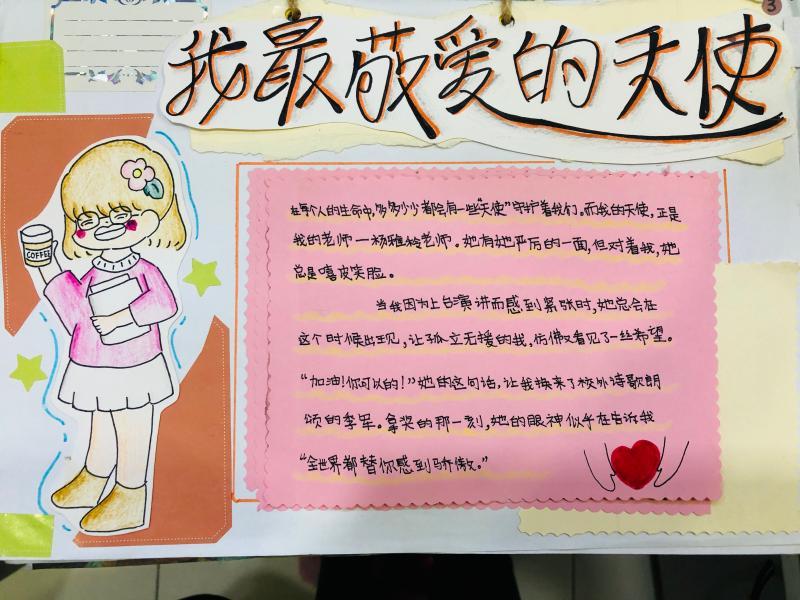 3
我最敬爱的天使
在每个人的生命中,多多少少都会有一些“天使”守护着我们。而我的天使,正是
我的老师—杨雅玲老师。她有她严厉的一面,但对着我,她
总是嘻皮笑脸。
当我因为上台演讲而感到紧张时,她总会在
这个时候出现,让孤立无援的我,仿佛又看见了一丝希望。
“加油!你可以的!”她的这句话,让我换来了校外诗歌朗
颂的季军。拿奖的那一刻,她的眼神似乎在告诉我
“全世界都替你感到骄傲。”
COFFEE